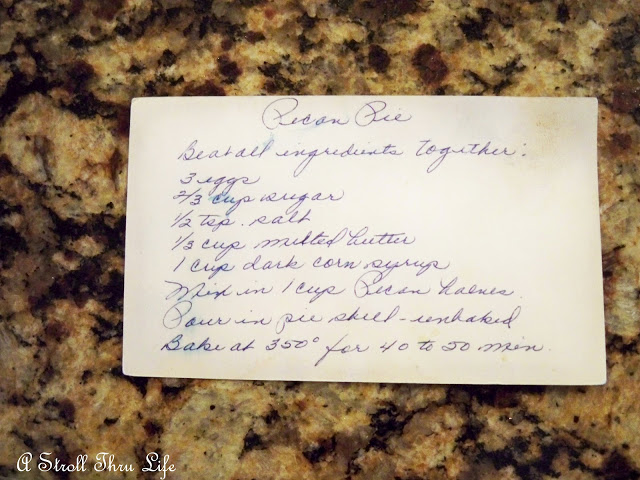 Pecan Pie
Beat all ingredients together:
3 eggs
2/3 cup sugar
1/2 tsp. salt
1/3 cup melted butter
1 cup dark corn syrup
Mix in 1 cup Pecan halves.
Pour in pie shell - unbaked
Bake at 350° for 40 to 50 min.
A Stroll Thru Life